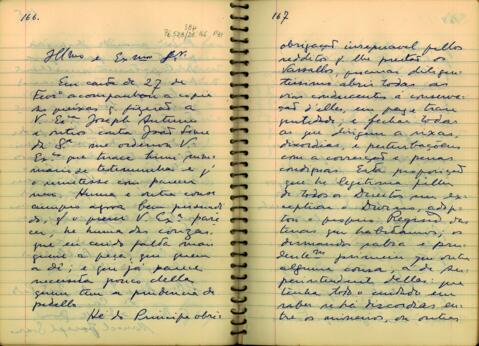 166.
Illmo e Exmo Snr.
Em carta de 27 de
Fevo acompanhou a copia
as queixas q fizerão a
V. Exa Joseph Antunes
e outro contra João
de Sa me ordenou V.
Exa que tirace hum
mario de testemunhas e q
o remetesse com parecer
meu. Huma e outra couza
cumpro agora bem persuadi
do, q o pieno V Exa pare
cer, he huma das couzas,
que eu cuido falta mais
quem a peça, que quem
a dê; e que já parece
necesita pouco della
quem tem a prudencia de
pedilla.
He do Principe obri
167.
obrigação inseparavel pellos
redditos q lhe prestão os
Vassallos, procurar
abrir todas as
vias conducentes á conser
vação d'elles, em paz e tran
quilidade; e fechar todas
as que dirigem a rixas,
discordias, e perturbações
com a correcção e penas
condignas. Esta proposição
que he legitima filha
de todo o Direito sem ex
ceptiva e Divina,
o proprio Regedor das
terras que habitamos; os
dismando palra e pru
dentemte primeiro que outra
alguma couza, a de Su
perintendente dellas: que
tenha todo o cuidado em
saber se há discordias en
tre os mineiros, ou outras